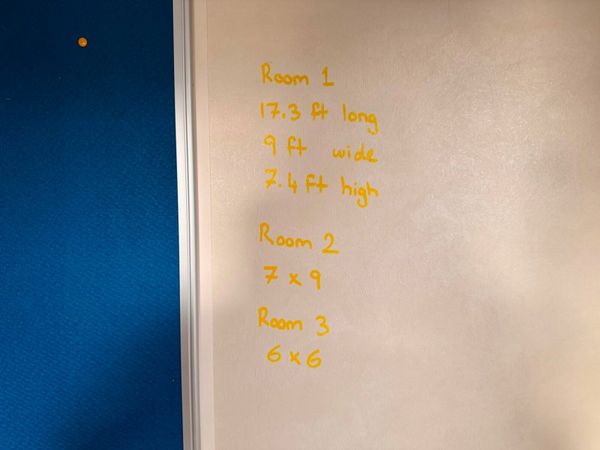 Room 1
17.3 ft long
9 ft wide
7.4 ft high
Room 2
7 x 9
Room 3
6 x 6